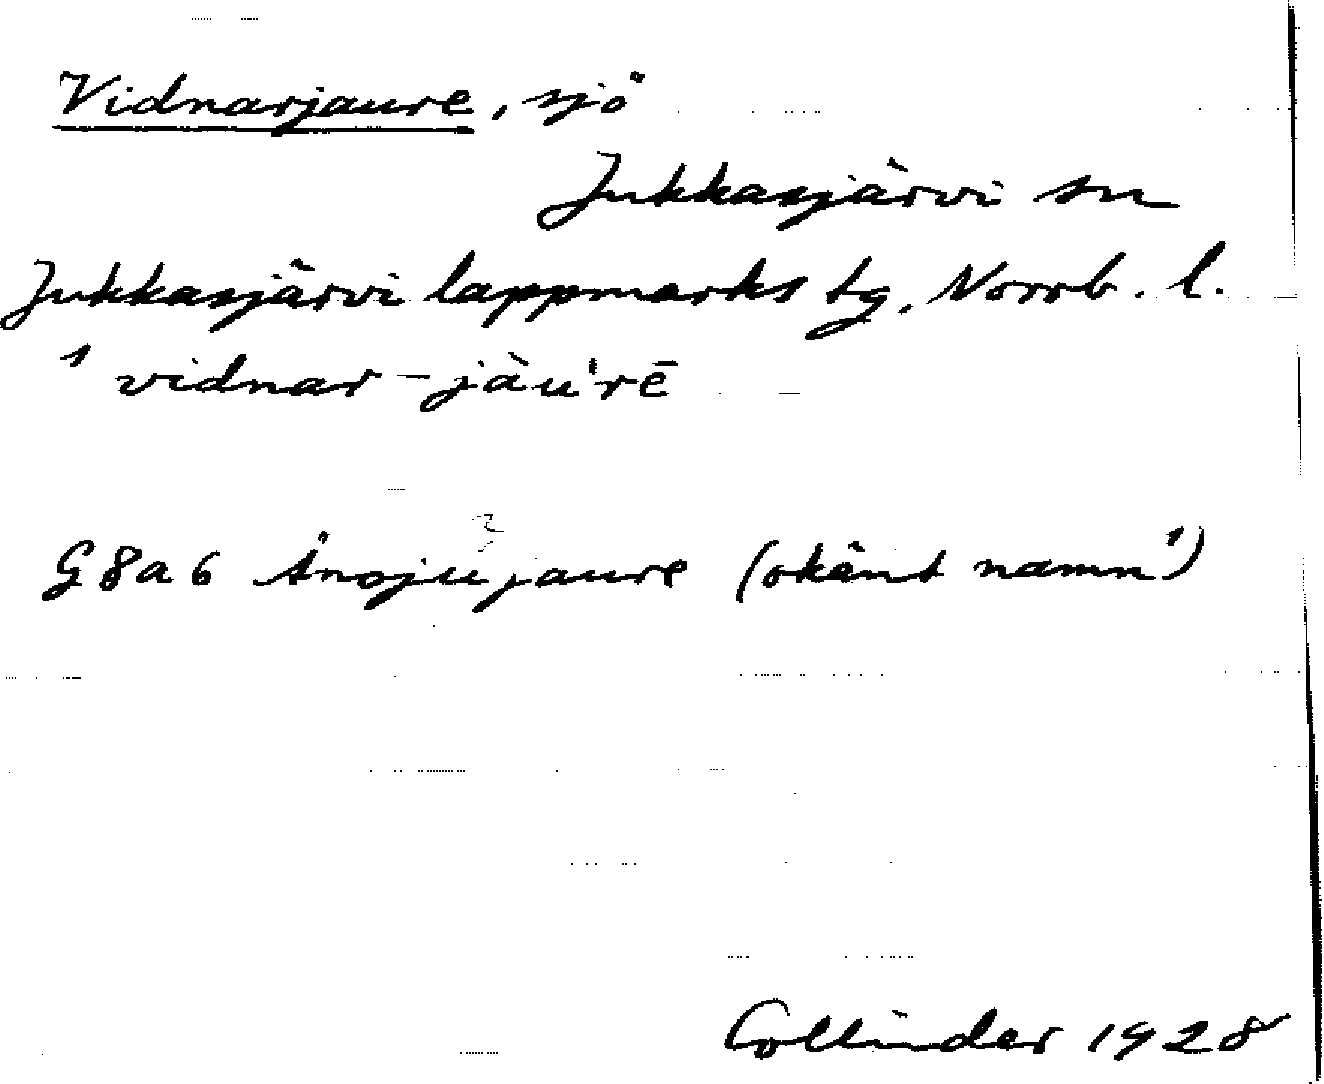 Vidnarjaure, sjö
Jukkasjärvi sn
Jukkasjärvi lappmarks tg. Norrb. l.
ˈvidnar-jàuˈrē
G 8 a 6 Ånojujaure (okänt namn!)
Collinder 1928